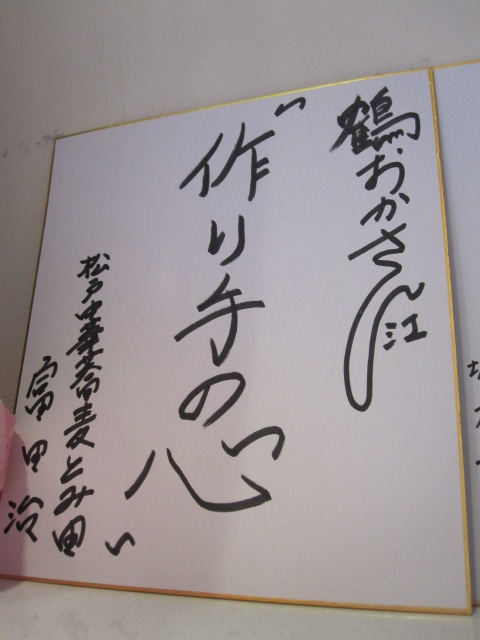 鶴おかさん江
"作り手の心"
松戸中華蕎麦とみ田
富田治